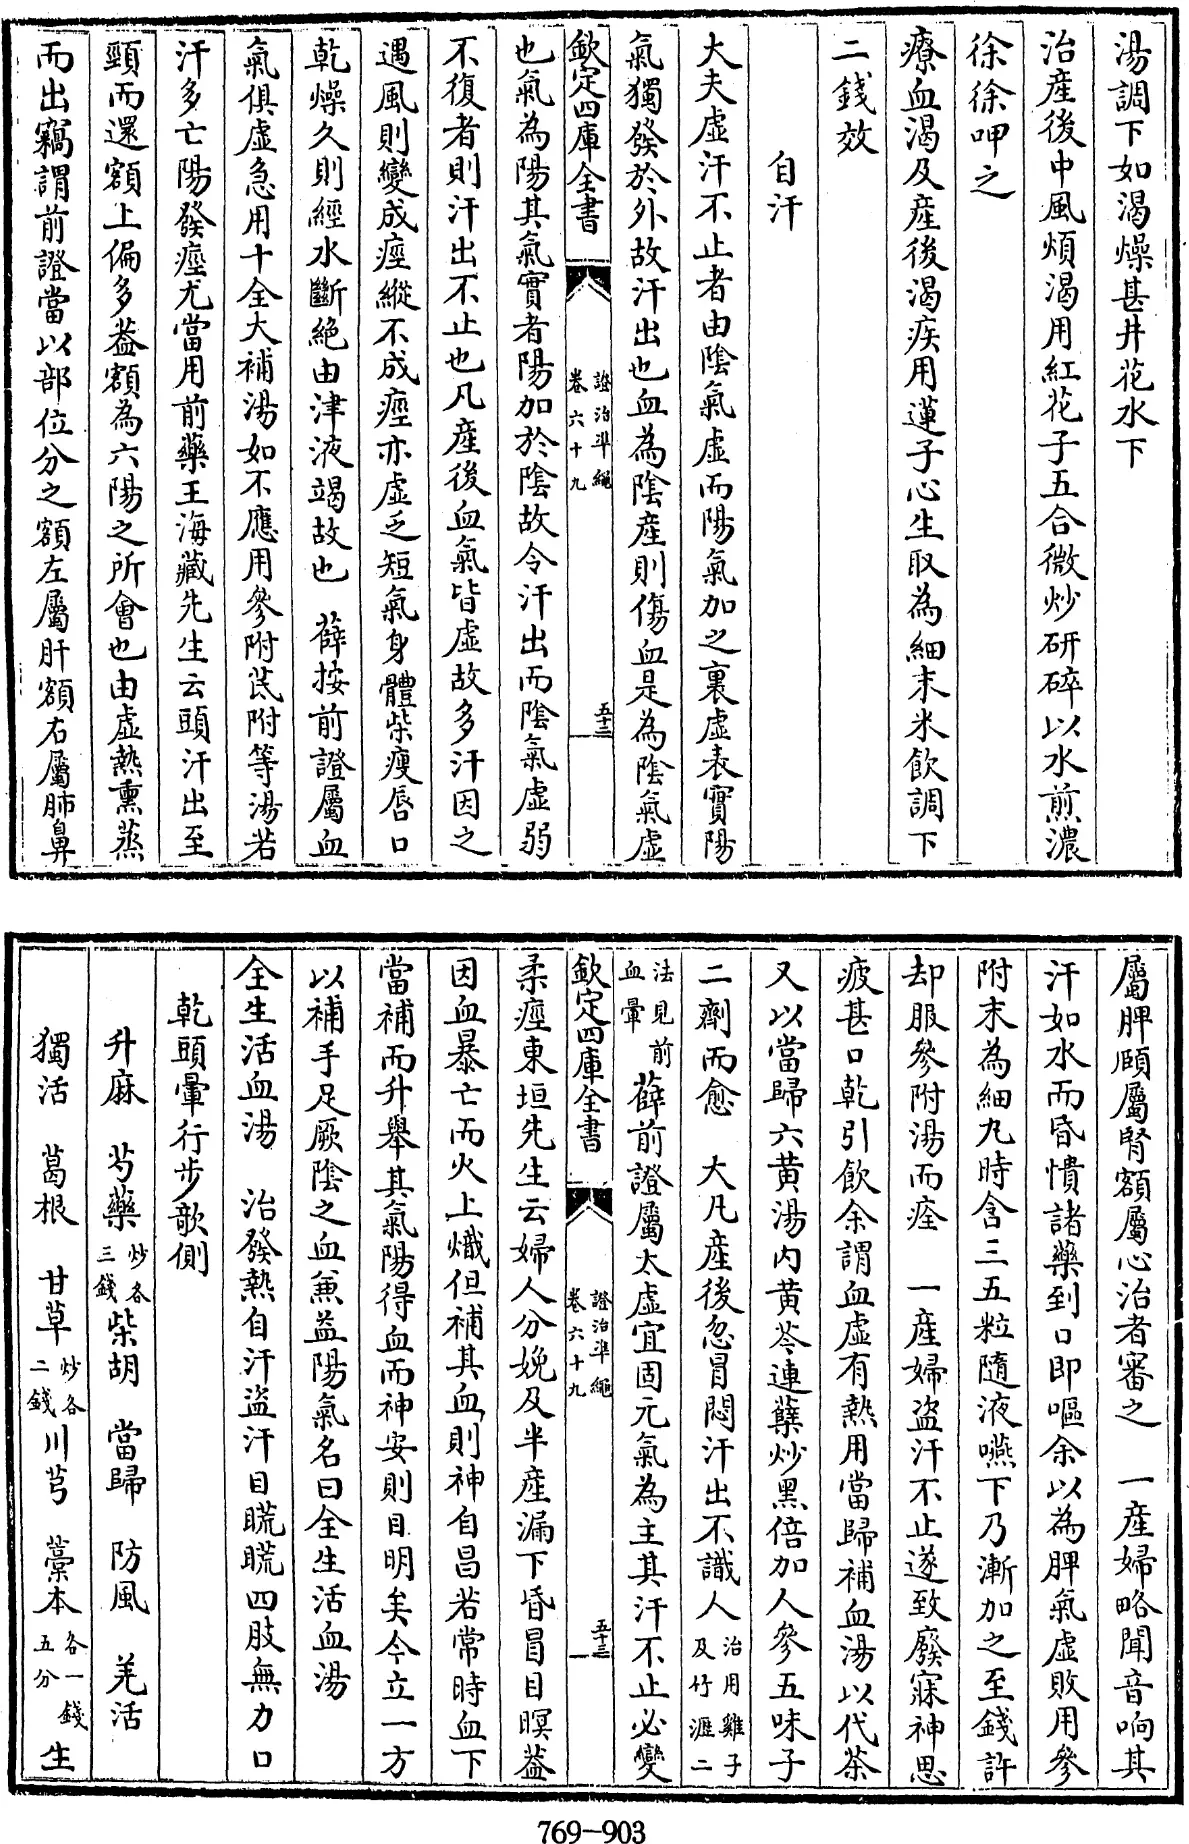 湯調下如渴燥甚井花水下
治産後中風煩渴用紅花子五合微炒研碎以水煎濃
徐徐呷之
療血渴及産後渴疾用蓮子心生取為細末米飲調下
二錢效
自汗
大夫虚汗不止者由陰氣虚而陽氣加之裏虚表實陽
氣獨發於外故汗出也血為陰産則傷血是為陰氣虚
欽定四庫全書
證治準繩
卷六十九
五十三
也氣為陽其氣實者陽加於陰故令汗出而陰氣虚弱
不復者則汗出不止也凡産後血氣皆虚故多汗因之
遇風則變成痙縱不成痙亦虚乏短氣身體柴瘦唇口
乾燥久則經水斷絶由津液竭故也 薛按前證屬血
氣俱虚急用十全大補湯如不應用參附芪附等湯若
汗多亡陽發痙尤當用前藥王海藏先生云頭汗出至
頸而還額上偏多葢額為六陽之所會也由虚熱熏蒸
而出竊謂前證當以部位分之額左屬肝額右屬肺鼻
屬脾頤屬腎額屬心治者審之 一産婦略聞音响其
汗如水而昏憒諸藥到口即嘔余以為脾氣虚敗用參
附末為細丸時含三五粒隨液嚥下乃漸加之至錢許
却服參附湯而痊 一産婦盗汗不止遂致廢寐神思
疲甚口乾引飲余謂血虚有熱用當歸補血湯以代茶
又以當歸六黄湯内黄芩連蘖炒黑倍加人參五味子
二劑而愈 大凡産後忽冒悶汗出不識人治用雞子及竹瀝二
法見前血暈薛前證屬太虚宜固元氣為主其汗不止必變
欽定四庫全書
證治準繩
卷六十九
五十三
柔痙東垣先生云婦人分娩及半産漏下昏冒目瞑葢
因血暴亡而火上熾但補其血則神自昌若常時血下
當補而升舉其氣陽得血而神安則目明矣今立一方
以補手足厥陰之血兼益陽氣名曰全生活血湯
全生活血湯 治發熱自汗盗汗目䀮䀮四肢無力口
乾頭暈行步欹側
升麻 芍藥炒各三錢柴胡 當歸 防風 羌活
獨活 葛根 甘草炒各二錢川芎 藁本各一錢五分 生
769-903